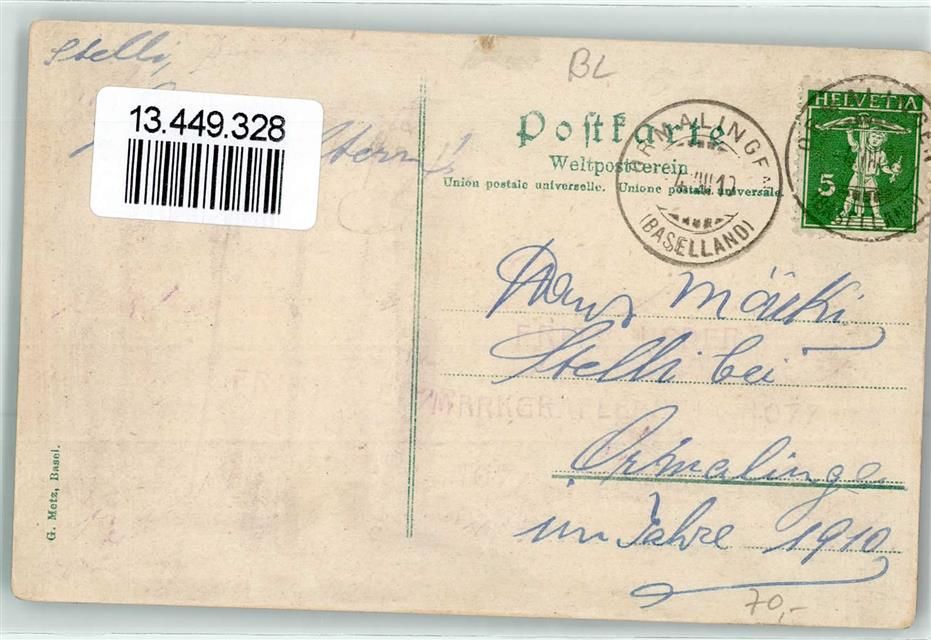 Stelli,
13.449.328
Stern
BL
Postkarte
Weltpostverein
Union postale universelle. Unione postale universale.
ORMALINGEN
4.VIII.10
(BASELLAND)
HELVETIA
5
Hans Märki
Stelli bei
Ormalingen
im Jahre 1910
70,-
G. Metz, Basel.